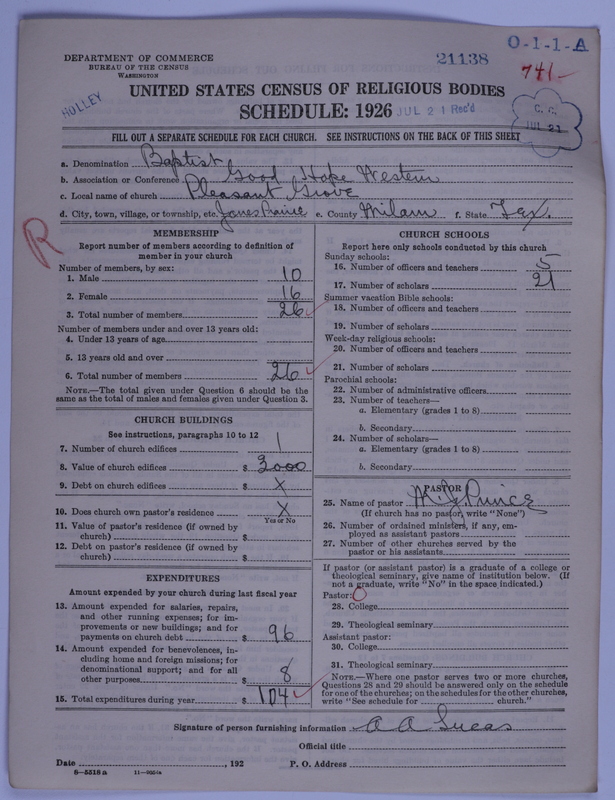 DEPARTMENT OF COMMERCE
BUREAU OF THE CENSUS
WASHINGTON
21138
O-1-1-A
741-
HOLLEY
UNITED STATES CENSUS OF RELIGIOUS BODIES
SCHEDULE: 1926
JUL 21 Rec'd
C. C.
JUL 21
FILL OUT A SEPARATE SCHEDULE FOR EACH CHURCH. SEE INSTRUCTIONS ON THE BACK OF THIS SHEET
a. Denomination Baptist
b. Association or Conference Good Hope Western
c. Local name of church Pleasant Grove
d. City, town, village, or township, etc. Jones Prairie e. County Milam f. State Tex.
R
MEMBERSHIP
Report number of members according to definition of
member in your church
Number of members, by sex:
1. Male 10
2. Female 16
3. Total number of members 26
Number of members under and over 13 years old:
4. Under 13 years of age
5. 13 years old and over
6. Total number of members 26
NOTE.—The total given under Question 6 should be the
same as the total of males and females given under Question 3.
CHURCH BUILDINGS
See instructions, paragraphs 10 to 12
7. Number of church edifices 1
8. Value of church edifices $ 2000
9. Debt on church edifices $ X
10. Does church own pastor's residence X
Yes or No
11. Value of pastor's residence (if owned by
church) $
12. Debt on pastor's residence (if owned by
church) $
EXPENDITURES
Amount expended by your church during last fiscal year
13. Amount expended for salaries, repairs,
and other running expenses; for im-
provements or new buildings; and for
payments on church debt $ 96
14. Amount expended for benevolences, in-
cluding home and foreign missions; for
denominational support; and for all
other purposes $ 8
15. Total expenditures during year $ 104
CHURCH SCHOOLS
Report here only schools conducted by this church
Sunday schools:
16. Number of officers and teachers 5
17. Number of scholars 21
Summer vacation Bible schools:
18. Number of officers and teachers
19. Number of scholars
Week-day religious schools:
20. Number of officers and teachers
21. Number of scholars
Parochial schools:
22. Number of administrative officers
23. Number of teachers—
a. Elementary (grades 1 to 8)
b. Secondary
24. Number of scholars—
a. Elementary (grades 1 to 8)
b. Secondary
PASTOR
25. Name of pastor Prince
(If church has no pastor, write "None")
26. Number of ordained ministers, if any, em-
ployed as assistant pastors
27. Number of other churches served by the
pastor or his assistants
If pastor (or assistant pastor) is a graduate of a college or
theological seminary, give name of institution below. (If
not a graduate, write "No" in the space indicated.)
Pastor: O
28. College
29. Theological seminary
Assistant pastor:
30. College
31. Theological seminary
NOTE.—Where one pastor serves two or more churches,
Questions 28 and 29 should be answered only on the schedule
for one of the churches; on the schedules for the other churches,
write "See schedule for church."
Signature of person furnishing information A A Lucas
Official title
Date , 192 P. O. Address
8—5518 a